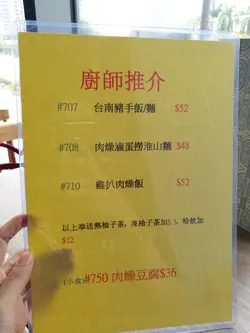 廚師推介
#707 台南豬手飯/麵 $52
#708 肉燥滷蛋撈淮山麵 $48
#710 雞扒肉燥飯 $52
以上奉送熱柚子茶，凍柚子茶加$3，特飲加
$12
(小食)#750 肉燥豆腐$36